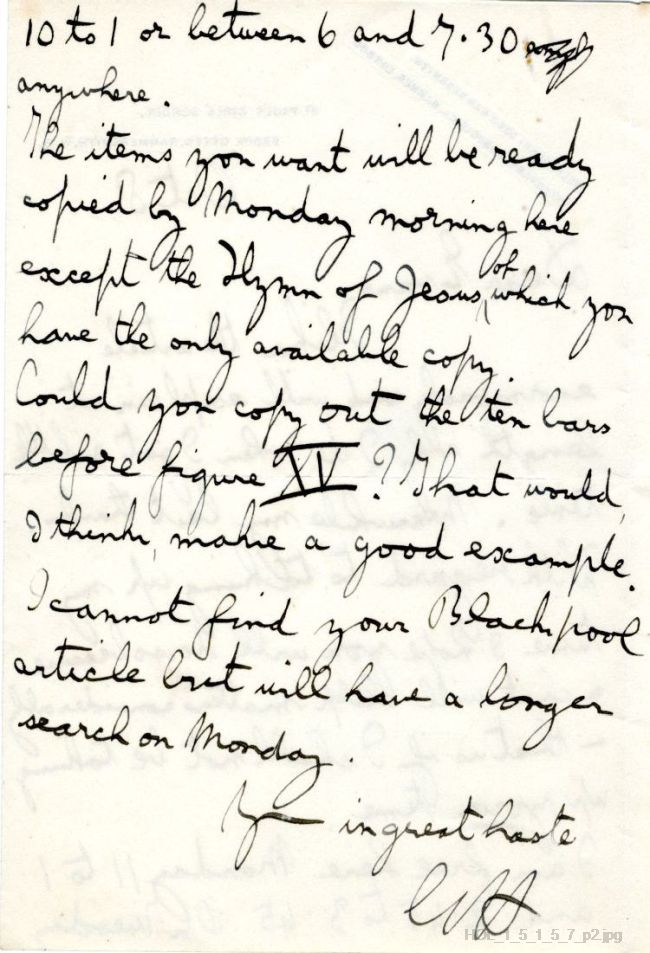 10 to 1 or between 6 and 7.30
anywhere.
The items you want will be ready
copied by Monday morning here
except the Hymn of Jesus, of which you
have the only available copy.
Could you copy out the ten bars
before figure XV? That would,
I think, make a good example.
I cannot find your Blackpool
article but will have a longer
search on Monday.
in great haste
HOL_1_5_1_5_7_p2jpg